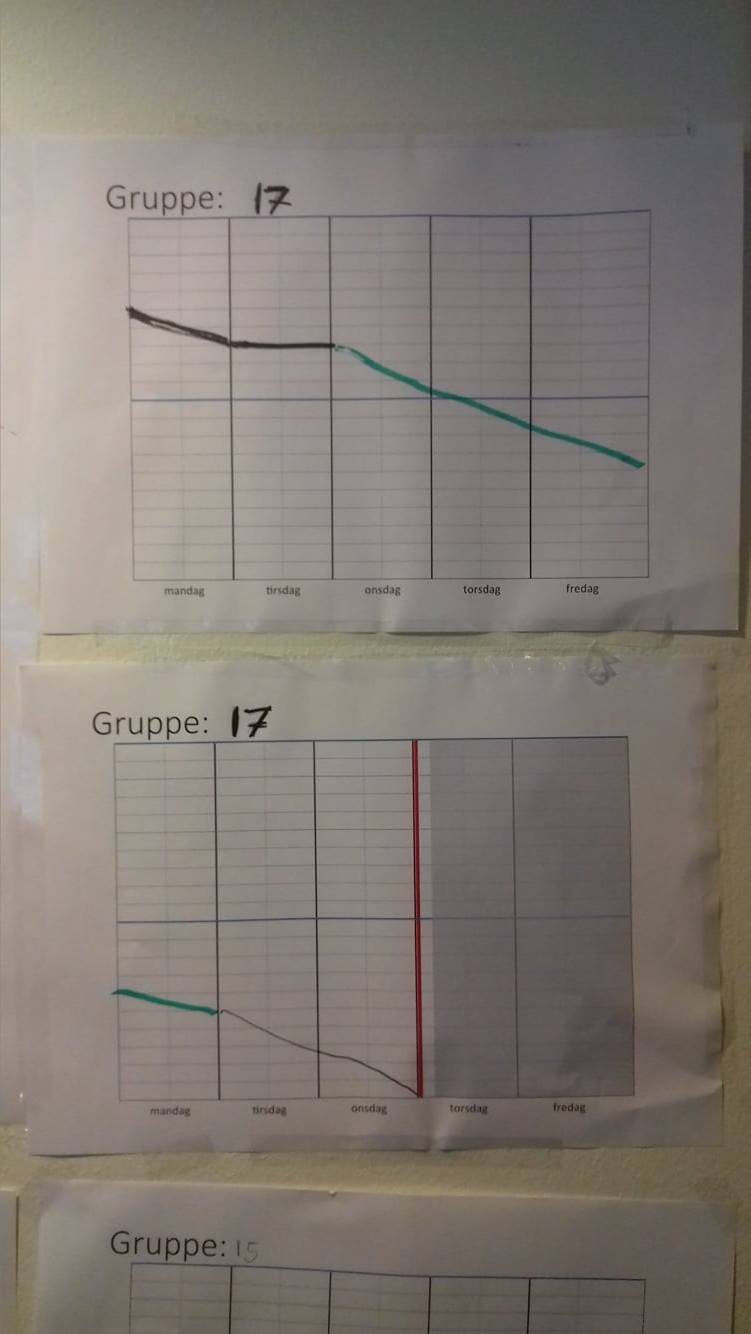 Gruppe: 17
mandag tirsdag onsdag torsdag fredag
Gruppe: 17
mandag tirsdag onsdag torsdag fredag
Gruppe: 15